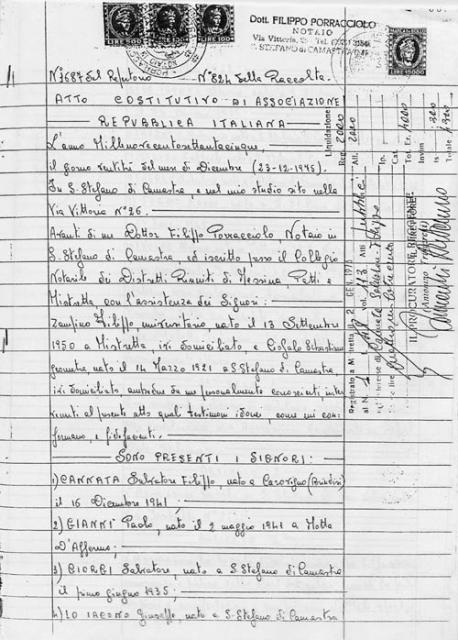 LIRE 500
LIRE 100
LIRE 100
Dott. FILIPPO PORRACCIOLO
NOTAIO
Via Vittoria, 26 - Tel.
S. STEFANO di CAMASTRA
N° 587 del Repertorio N° 824 della Raccolta.
ATTO COSTITUTIVO DI ASSOCIAZIONE
REPUBBLICA ITALIANA
L'anno Millenovecentosettantacinque,
il giorno ventitré del mese di Dicembre (23-12-1975).
In S. Stefano di Camastra, e nel mio studio sito nella
Via Vittoria N° 26.
Avanti di me Dottor Filippo Porracciolo, Notaio in
S. Stefano di Camastra, ed iscritto presso il Collegio
Notarile dei Distretti Riuniti di Messina, Patti e
Mistretta, con l'assistenza dei Signori:
Zampino Filippo universitario, nato il 13 Settembre
1950 a Mistretta, ivi domiciliato e Ciofalo Sebastiano
geometra, nato il 14 Marzo 1921 a S. Stefano di Camastra,
ivi domiciliato, ambedue da me personalmente conosciuti, inter
venuti al presente atto quali testimoni idonei, come mi con
fermano, e fidefacenti.
SONO PRESENTI I SIGNORI:
1) CANNATA Salvatore Filippo, nato a Carovigno (Brindisi)
il 16 Dicembre 1941;
2) GIANNI' Paolo, nato il 2 maggio 1941 a Motta
D'Affermo;
3) GIORGI Salvatore, nato a S. Stefano di Camastra
il primo giugno 1935;
4) LO IACONO Giuseppe, nato a S. Stefano di Camastra
Liquidazione
Reg. 2000
All. 2000
Ip.
Cat.
Tot. Er. 4000
Imbm
is. 300
Totale 4300
Registrato a Mistretta
al N. Vol. 113 Atti pubblici
IL PROCURATORE REGGENTE